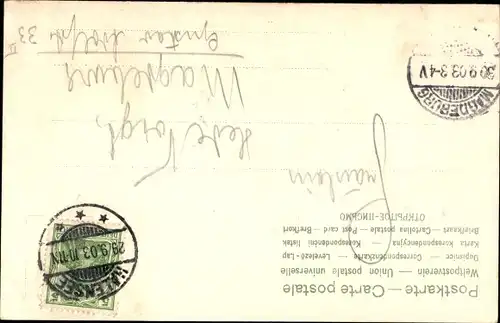 Postkarte — Carte postale
Weltpostverein — Union postale universelle
Dopisnice — Correspondenzkarte — Levelező-Lap
Karta korespondencyjna — Korespondenční lístek
Briefkaart — Cartolina postale — Post card — Brefkort
ОТКРЫТОЕ ПИСЬМО
Fräulein
Voigt,
Magdeburg
Gustav Adolfstr
33
MAGDEBURG
30.9.03.3-4V
HALENSEE
29.9.03.